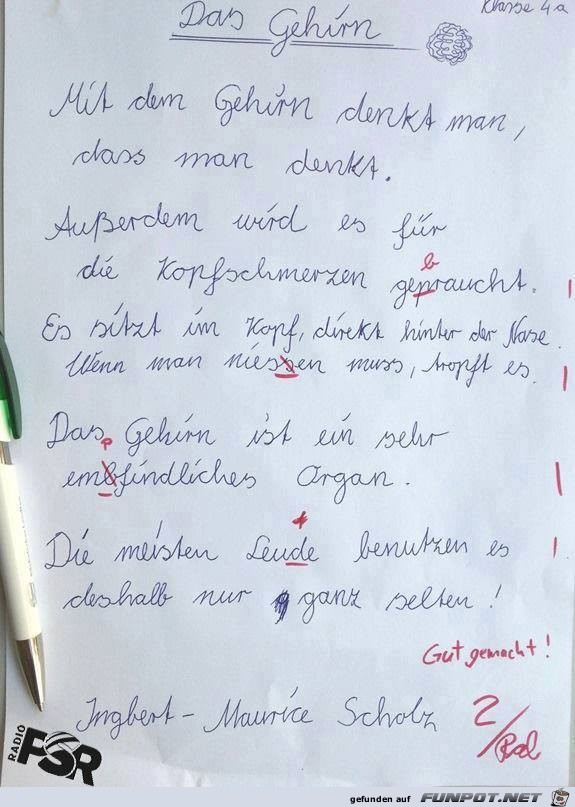 Klasse 4a
Das Gehirn
Mit dem Gehirn denkt man,
dass man denkt.
Außerdem wird es für
die Kopfschmerzen gepraucht.
b
Es sitzt im Kopf, direkt hinter der Nase.
Wenn man niessen muss, tropft es.
Das Gehirn ist ein sehr
p
embfindliches Organ.
t
Die meisten Leude benutzen es
deshalb nur ganz selten!
Gut gemacht!
Ingbert-Maurice Scholz
2
RADIO PSR
gefunden auf FUNPOT.NET